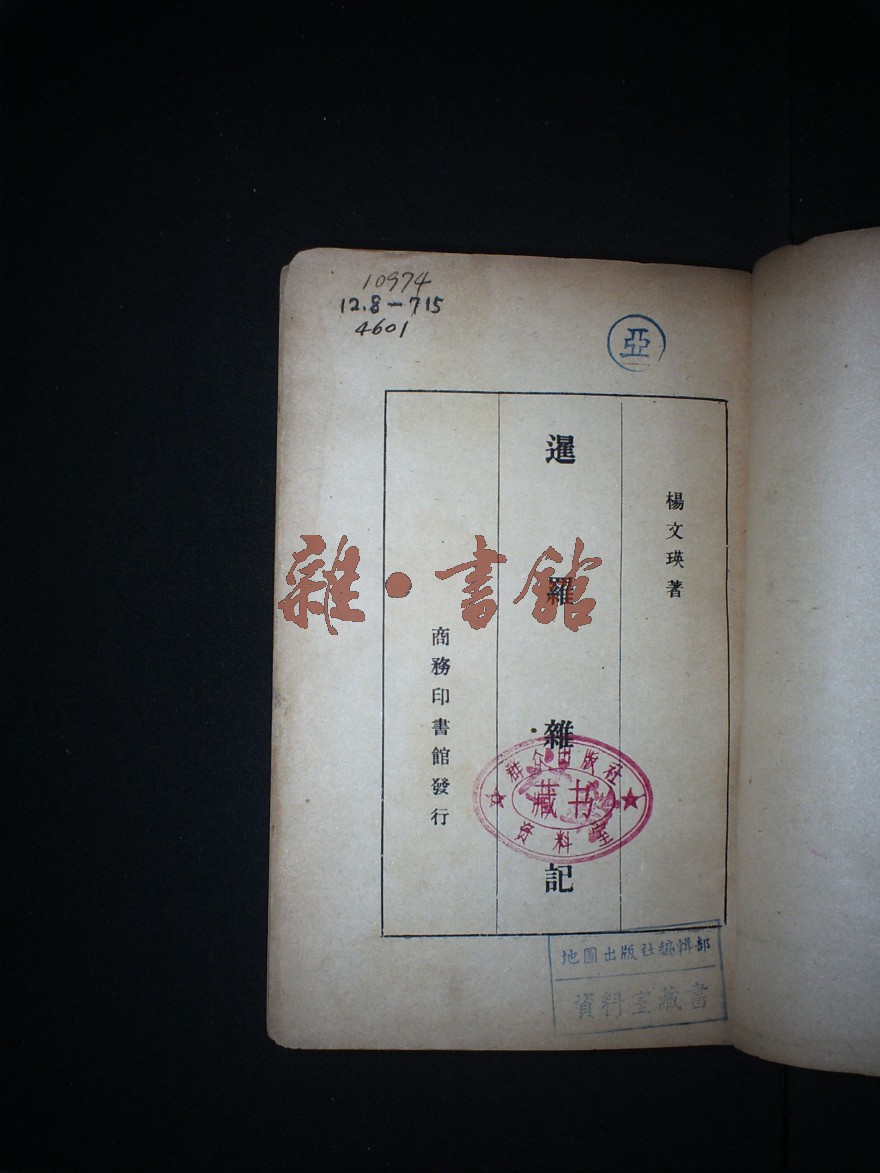 10974
12.8-715
4601
亞
楊文瑛著
暹羅雜記
商務印書館發行
雜·書館
群众出版社
藏书
资料室
地圖出版社編輯部
資料室藏書